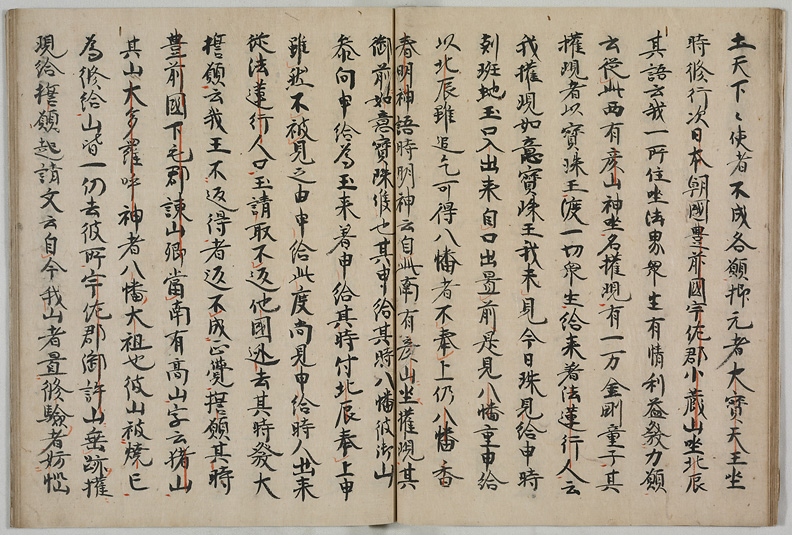 土天下々使者不成各願抑元者大寳天王坐
時修行次日本朝國豊前國宇佐郡小蔵山坐北辰
其語云我一所住坐法界衆生有情利益發力願
云從此西有彦山神坐名權現有一万金剛童子其
權現者以寳珠玉渡一切衆生給来着法蓮行人云
我權現如意寳珠玉我来見今日珠見給申時
剋班虵玉口入出来自口出置前是見八幡重申給
以北辰雖追乞可得八幡者不奉上仍八幡香
春明神語時明神云自此南有彦山坐權現其
御前如意寳珠侍也其申給其時八幡彼御山
参向申給為玉来着申給其時付北辰奉上申
雖然不被見之由申給此度尚見申給時八出来
從法蓮行人口玉請取不返他國迯去其時發大
誓願云我王不返得者返不成正覺誓願其時
豊前國下毛郡諌山郷當南有高山字云猪山
其山大多羅呼神者八幡大祖也彼山被燒已
為修給山皆一仞去彼所宇佐郡御許山垂跡權
現給誓願起請文云自今我山者置修驗者妨惱